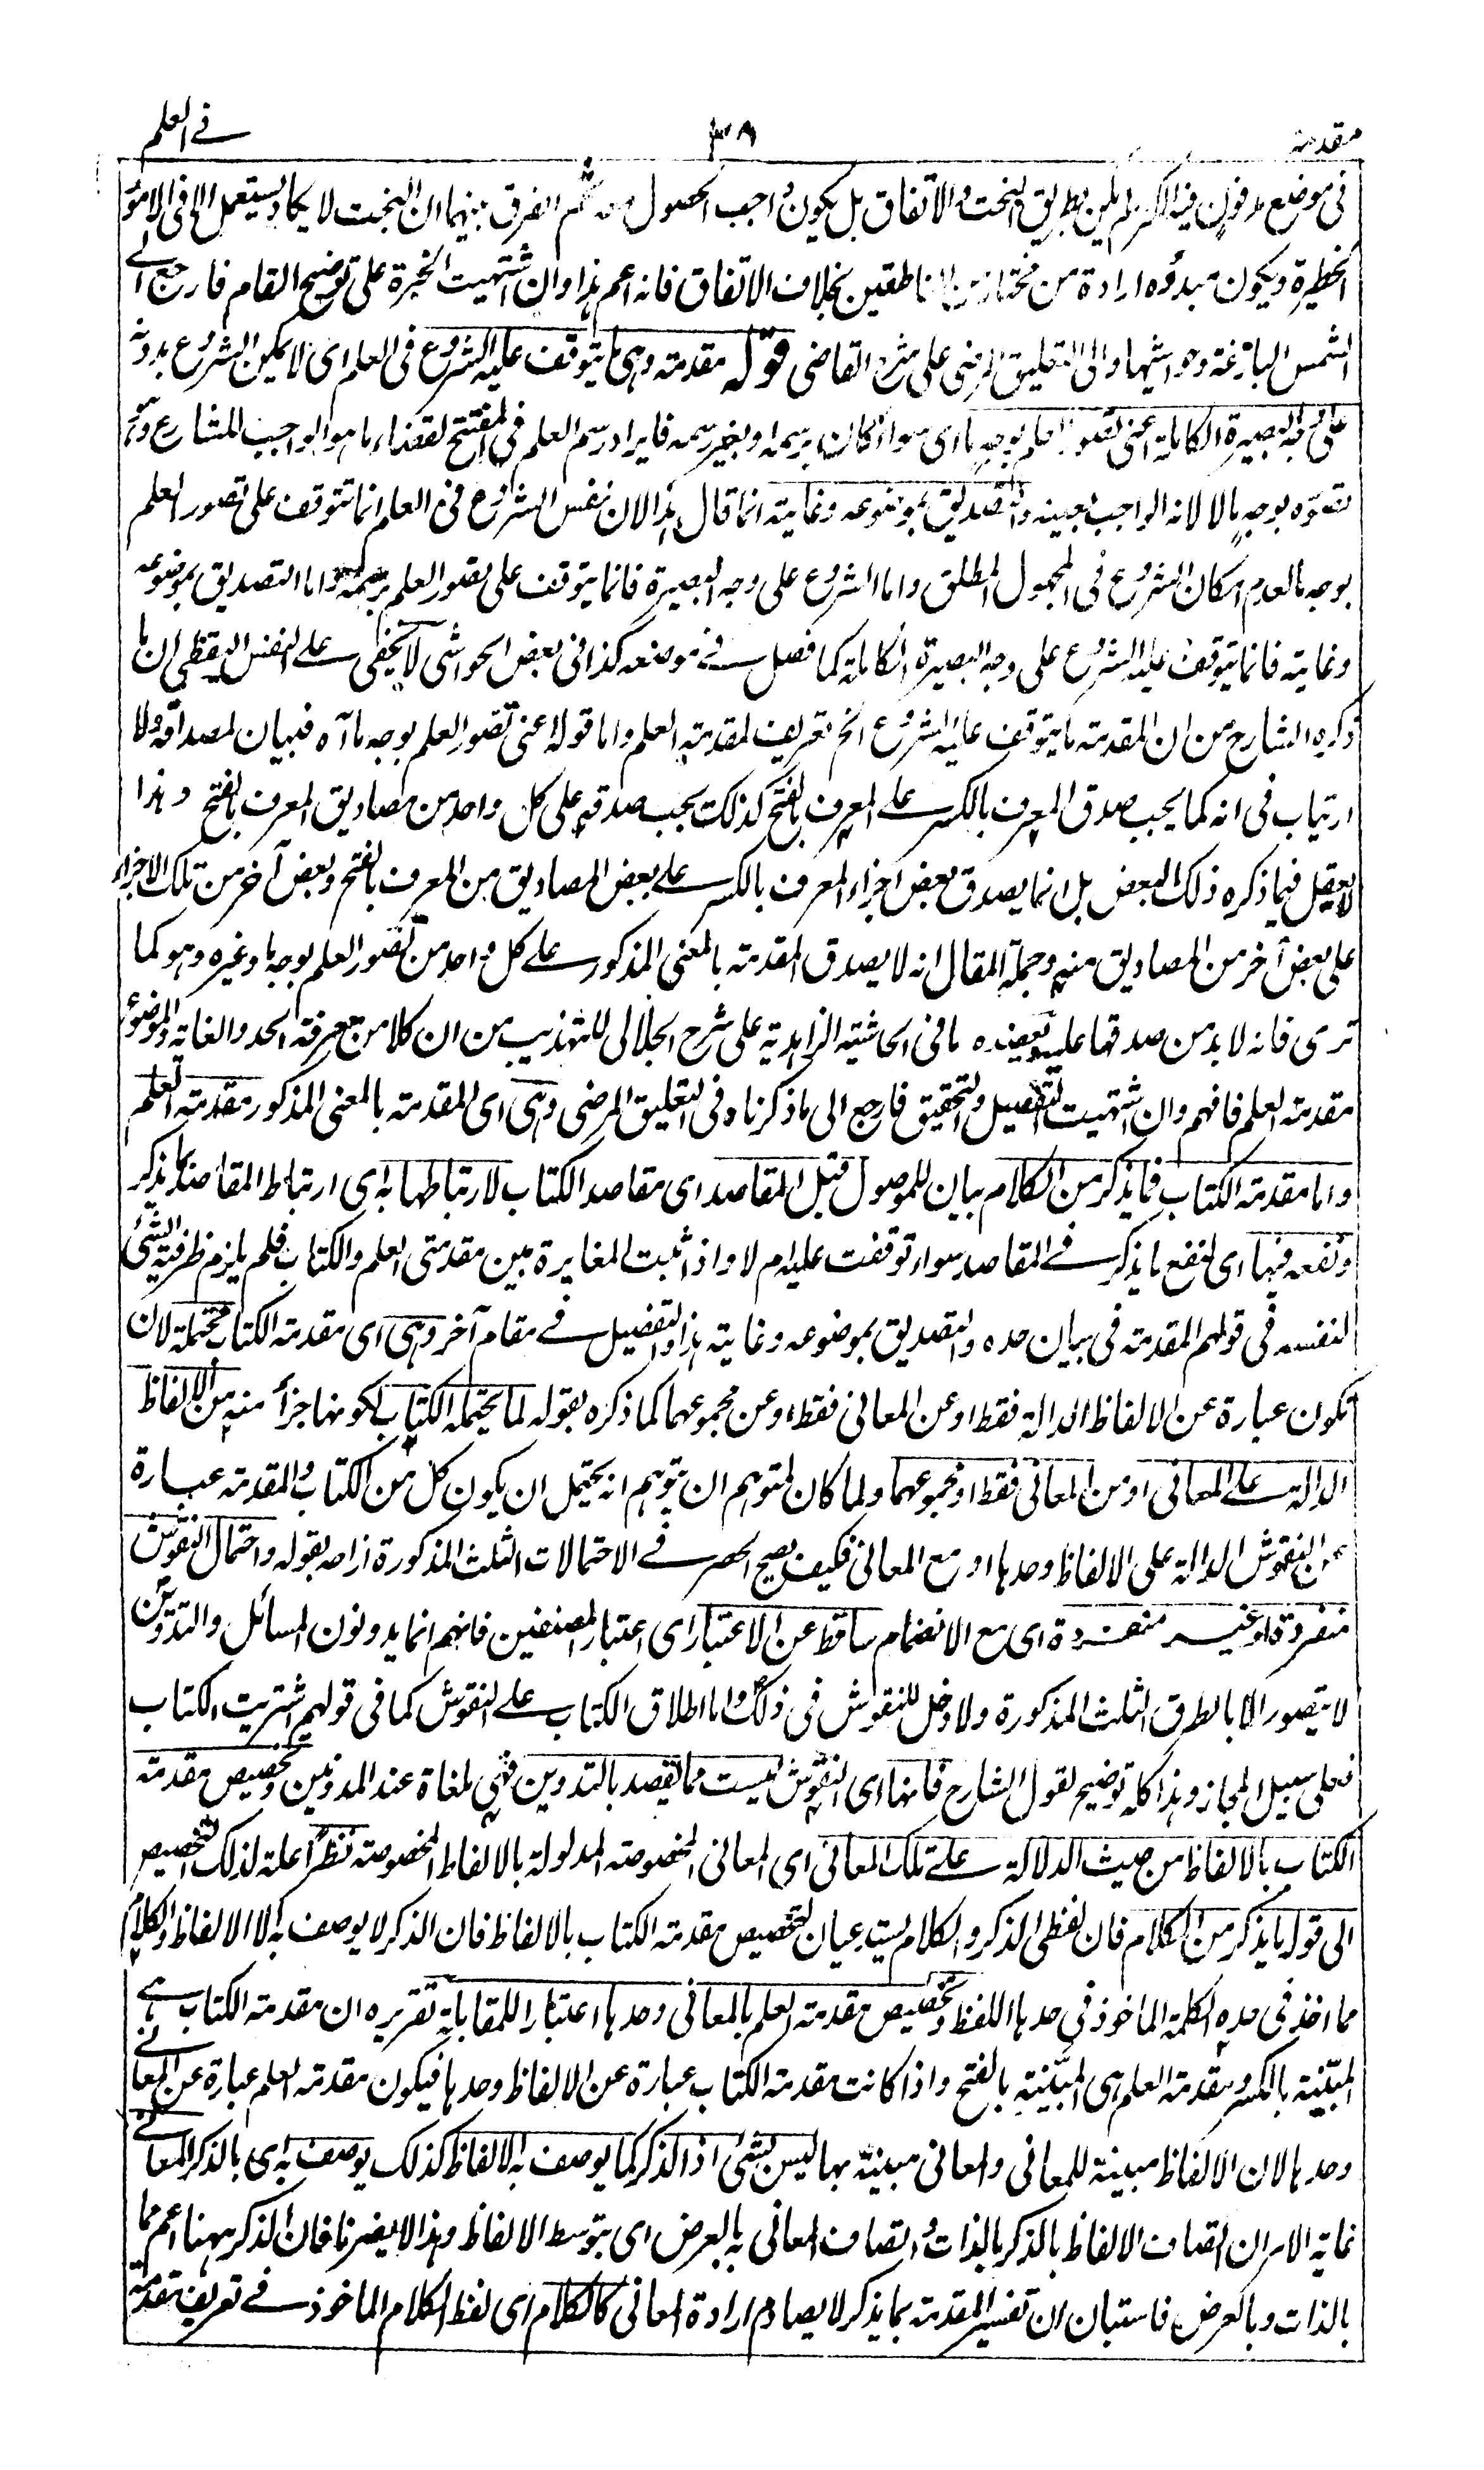 مقدمة ٣٨ في العلم
في موضع مدفون فيه الكنز لم يكن بطريق البخت والاتفاق بل يكون واجب الحصول منه ثم الفرق بينهما ان البخت لا يكاد يستعمل الا في الامور
الخطيرة ويكون مبدؤه ارادة من مختار من الناطقين بخلاف الاتفاق فانه اعم هذا وان اشتهيت الخبرة على توضيح المقام فارجع الى
الشمس البازغة وحواشيها والى التعليق المرضي على شرح القاضي قوله مقدمة وهي ما يتوقف عليه الشروع في العلم اى لا يمكن الشروع بدونه
على وجه البصيرة الكاملة اعني تصور العلم بوجه ما اى سواء كان برسمه او بغير رسمه فايراد رسم العلم في المفتتح لقضاء ما هو الواجب للشارع وهو
تصوره بوجه ما لا لانه الواجب بعينه والتصديق بموضوعه وغايته انما قال هذا لان نفس الشروع في العلم انما تتوقف على تصور العلم
بوجه ما لعدم امكان الشروع في المجهول المطلق واما الشروع على وجه البصيرة فانما يتوقف على تصور العلم برسمه واما التصديق بموضوعه
وغايته فانما يتوقف عليه الشروع على وجه البصيرة الكاملة كما فصل في موضعه كذا في بعض الحواشي لا يخفى على النفس اليقظى ان ما
ذكره الشارح من ان المقدمة ما يتوقف عليه الشروع الخ تعريف لمقدمة العلم واما قوله اعني تصور العلم بوجه ما آه فبيان لمصداقه ولا
ارتياب في انه كما يجب صدق المعرف بالكسر على المعرف بالفتح كذلك يجب صدقه على كل واحد من مصاديق المعرف بالفتح وهذا
لا يعقل فيما ذكره ذلك البعض بل انما يصدق بعض اجزاء المعرف بالكسر على بعض المصاديق من المعرف بالفتح وبعض آخر من تلك الاجزاء
على بعض آخر من المصاديق منه وجملة المقال انه لا يصدق المقدمة بالمعنى المذكور على كل واحد من تصور العلم بوجه ما وغيره وهو كما
ترى فانه لا بد من صدقها عليه ويعضده ما في الحاشية الزاهدية على شرح الجلالي للتهذيب من ان كلا من معرفة الحد والغاية والموضوع
مقدمة العلم فافهم وان اشتهيت التفصيل والتحقيق فارجع الى ما ذكرناه في التعليق المرضي وهي اى المقدمة بالمعنى المذكور مقدمة العلم
واما مقدمة الكتاب فما يذكر من الكلام بيان للموصول قبل المقاصد اى مقاصد الكتاب لارتباطها به اى ارتباط المقاصد بما يذكر
ونفعه فيها اى لنفع ما يذكر في المقاصد سواء توقفت عليه ام لا واذا ثبت المغايرة بين مقدمتي العلم والكتاب فلم يلزم ظرفية الشئ
لنفسه في قولهم المقدمة في بيان حده والتصديق بموضوعه وغايته هذا والتفصيل في مقام آخر وهي اى مقدمة الكتاب محتملة لان
تكون عبارة عن الالفاظ الدالة فقط او عن المعاني فقط او عن مجموعهما كما ذكره بقوله لما يحتمله الكتاب لكونها جزأ منه من الالفاظ
الدالة على المعاني او من المعاني فقط او مجموعهما ولما كان لمتوهم ان يتوهم انه يحتمل ان يكون كل من الكتاب والمقدمة عبارة
عن النقوش الدالة على الالفاظ وحدها او مع المعاني فكيف يصح الحصر في الاحتمالات الثلث المذكورة ازاحه بقوله واحتمال النقوش
منفردة او غير منفردة اى مع الانضمام ساقط عن الاعتبار اى اعتبار المصنفين فانهم انما يدونون المسائل والتدوين
لا يتصور الا بالطرق الثلث المذكورة ولا دخل للنقوش في ذلك واما اطلاق الكتاب على النقوش كما في قولهم اشتريت الكتاب
فعلى سبيل المجاز وهذا كله توضيح لقول الشارح فانها اى النقوش ليست مما يقصد بالتدوين فهي ملغاة عند المدونين وتخصيص مقدمة
الكتاب بالالفاظ من حيث الدلالة على تلك المعاني اى المعاني المخصوصة المدلولة بالالفاظ المخصوصة نظرا علة لذلك التخصيص
الى قوله ما يذكر من الكلام فان لفظي الذكر والكلام يستدعيان لتخصيص مقدمة الكتاب بالالفاظ فان الذكر لا يوصف به الا الالفاظ والكلام
مما اخذ في حده الكلمة الماخوذ في حدها اللفظ وتخصيص مقدمة العلم بالمعاني وحدها اعتبارا للمقابلة تقريره ان مقدمة الكتاب هي
المبينة بالكسر ومقدمة العلم هي المبينة بالفتح واذا كانت مقدمة الكتاب عبارة عن الالفاظ وحدها فيكون مقدمة العلم عبارة عن المعاني
وحدها لان الالفاظ مبينة للمعاني والمعاني مبينة بها ليس بشئ اذ الذكر كما يوصف به الالفاظ كذلك يوصف به اى بالذكر المعاني
غاية الامر ان اتصاف الالفاظ بالذكر بالذات واتصاف المعاني به بالعرض اى بتوسط الالفاظ وهذا لا يضرنا فان الذكر ههنا اعم مما
بالذات وبالعرض فاستبان ان تفسير المقدمة بما يذكر لا يصادم ارادة المعاني كالكلام اى لفظ الكلام الماخوذ في تعريف مقدمة